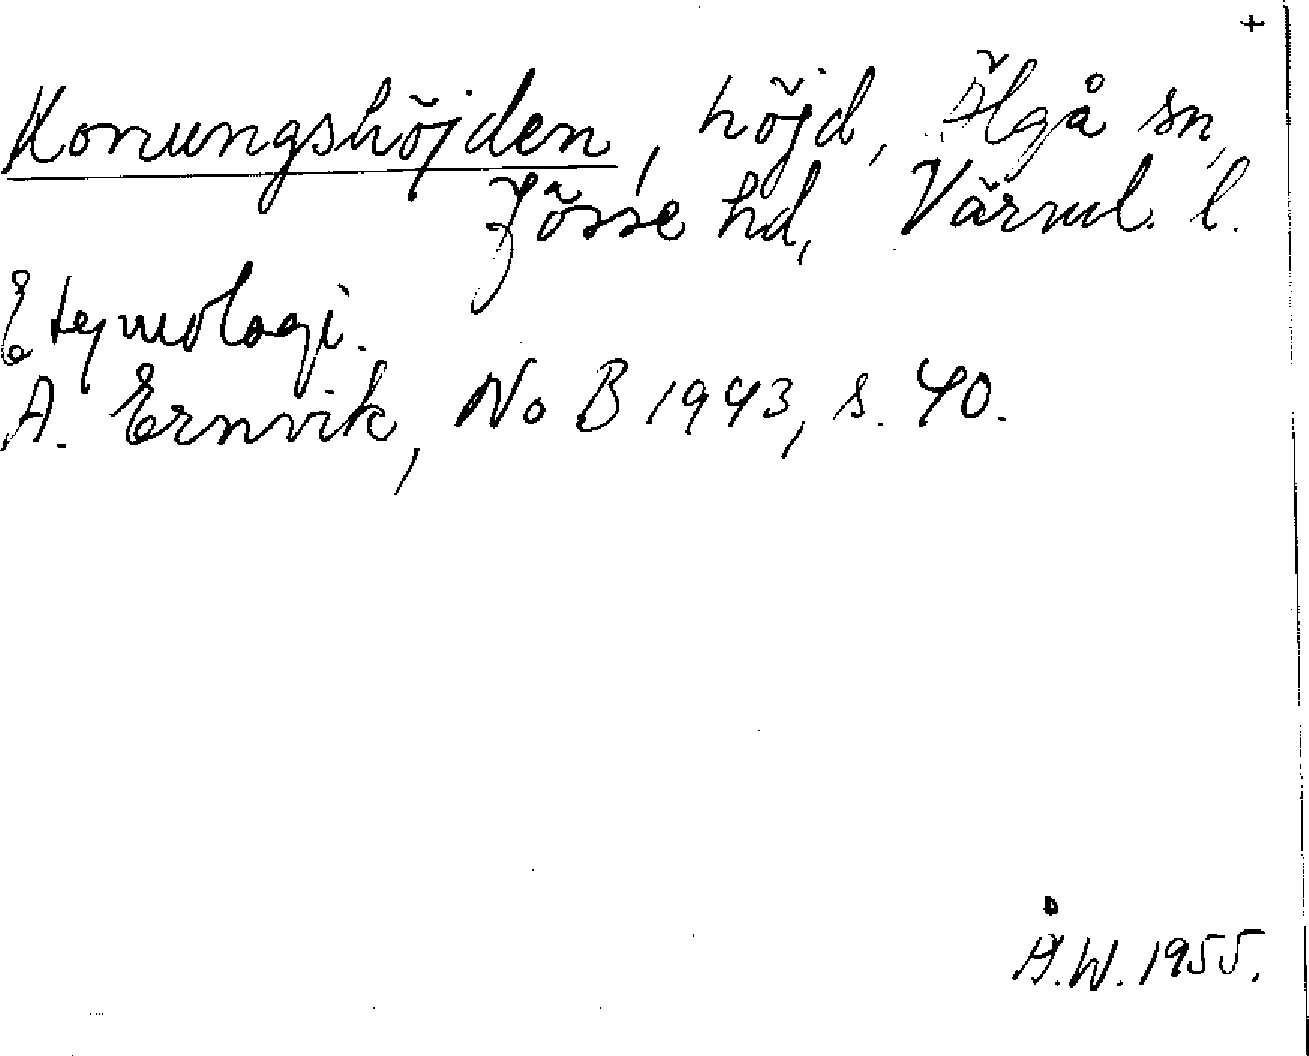 Konungshöjden, höjd, Älgå sn,
Jösse hd, Värml. l.
Etymologi.
A. Ernvik, NoB 1943, s. 40.
Å.W. 1955.